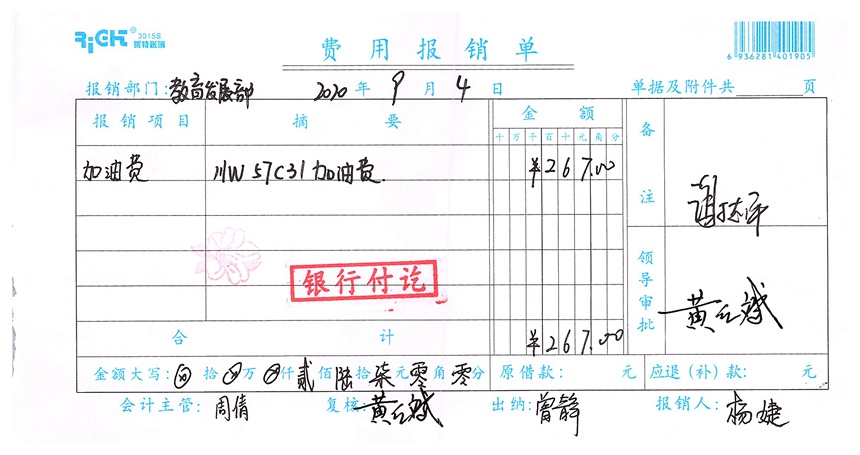 RiCHT® 3018S
費用报销单
6 936281 401905
报销部门:教育发展部 2020年9月4日 单据及附件共 页
报销项目 摘要 金额 备注
十万千百十元角分
加油费 川W57C31加油费 ¥267.00
银行付讫
领导审批
合计 ¥267.00
金额大写: 拾 万 仟贰佰陆拾柒元零角零分 原借款: 元 应退(补)款: 元
会计主管:周倩 复核: 出纳:曾静 报销人:杨婕